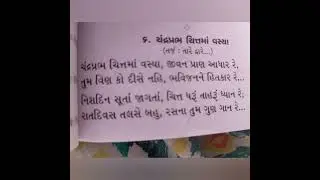 ૬. ચંદ્રપ્રભ ચિત્તમાં વસ્યા
(તર્જ : તારે દ્વારે...)
ચંદ્રપ્રભ ચિત્તમાં વસ્યા, જીવન પ્રાણ આધાર રે,
તુમ વિણ કો દીસે નહિ, ભવિજનને હિતકાર રે...
નિશદિન સૂતાં જાગતાં, ચિત્ત ધરૂં તાહરૂં ધ્યાન રે,
રાતદિવસ તલસે બહુ, રસના તુમ ગુણ ગાન રે...